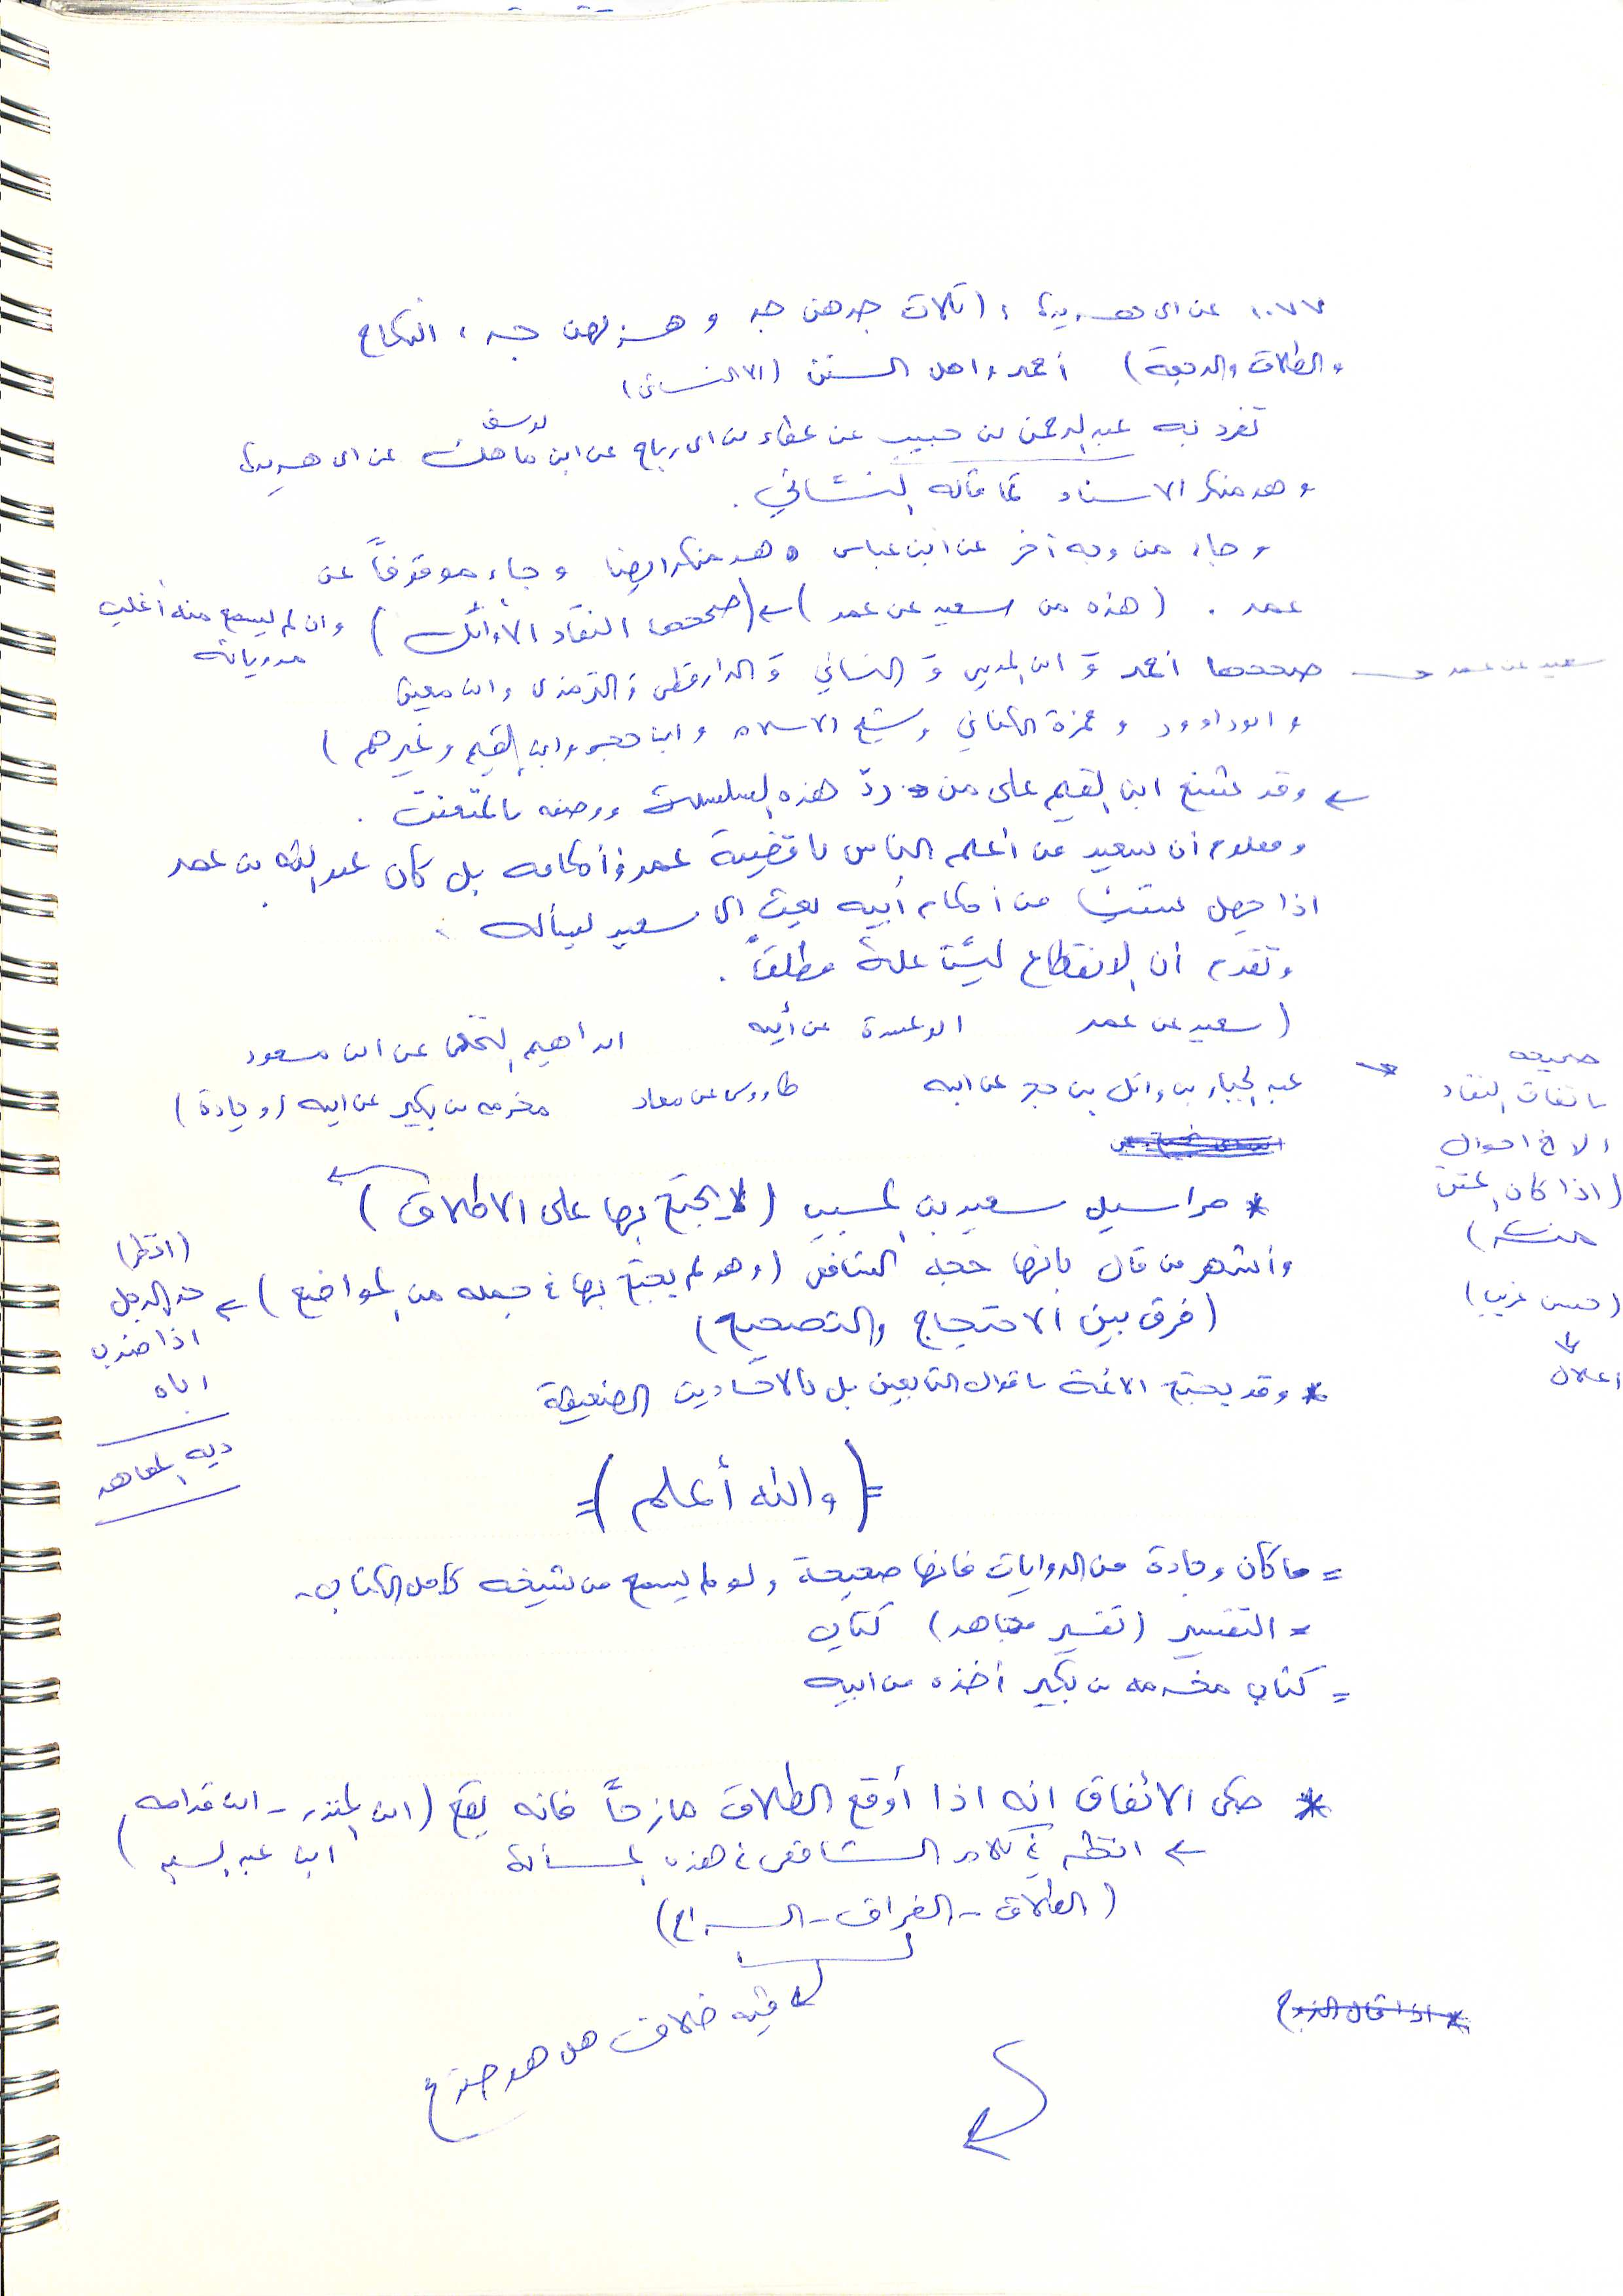 ١٠٧٧ عن ابي هريرة : (ثلاث جدهن جد وهزلهن جد ، النكاح
والطلاق والرجعة) أحمد واهل السنن (الا النسائي)
تفرد به عبدالرحمن بن حبيب عن عطاء بن ابي رباح عن ابن ماهك عن ابي هريرة
يوسف
وهو منكر الاسناد كما قاله النسائي .
وجاء من وجه آخر عن ابن عباس وهو منكر ايضا وجاء موقوفاً عن
عمر . (هذه من سعيد عن عمر) ← (صححها النقاد الأوائل) وان لم يسمع منه أغلب
مروياته
سعيد عن عمر → صححها أحمد وَ ابن المديني وَ النسائي وَ الدارقطني وَ الترمذي وابن معين
و ابو داوود و حمزة الكناني وشيخ الاسلام وابن حجر وابن القيم وغيرهم )
← وقد شنع ابن القيم على من ردّ هذه السلسلة ووصفه بالتعنت .
ومعلوم أن سعيد من أعلم الناس باقضية عمر وأحكامه بل كان عبدالله بن عمر
اذا جهل شيئا من أحكام أبيه بعث الى سعيد ليسأله .
وتقدم أن الانقطاع ليس علة مطلقاً .
( سعيد عن عمر ابو عبيدة عن أبيه ابراهيم النخعي عن ابن مسعود
عبدالجبار بن وائل بن حجر عن ابيه طاووس عن معاذ مخرمه بن بكير عن ابيه (وجادة)
صحيحه
باتفاق النقاد
الا في احوال
(اذا كان المتن
منكر)
(حسن غريب)
↓
اعلال
* مراسيل سعيد بن المسيب (لا يحتج بها على الاطلاق)
وأشهر من قال بانها حجه الشافعي (وهو لم يحتج بها في جمله من المواضع) ←
(فرق بين الاحتجاج والتصحيح)
(انظر)
حد الرجل
اذا ضرب
اباه
دية المعاهد
* وقد يحتج الائمة باقوال التابعين بل بالاحاديث الضعيفة
=( والله أعلم )=
= ما كان وجادة من الروايات فانها صحيحة ولو لم يسمع من شيخه كامل الكتاب .
= التفسير (تفسير مجاهد) كتاب
= كتاب مخرمه بن بكير أخذه من ابيه
* حكى الاتفاق انه اذا أوقع الطلاق هازحاً فانه يقع (ابن المنذر - ابن قدامه
ابن عبدالبر )
← انظر في كلام الشافعي في هذه المسألة
(الطلاق - الفراق - السراح)
فيه خلاف هل هو صريح
* اذا قال الزوج